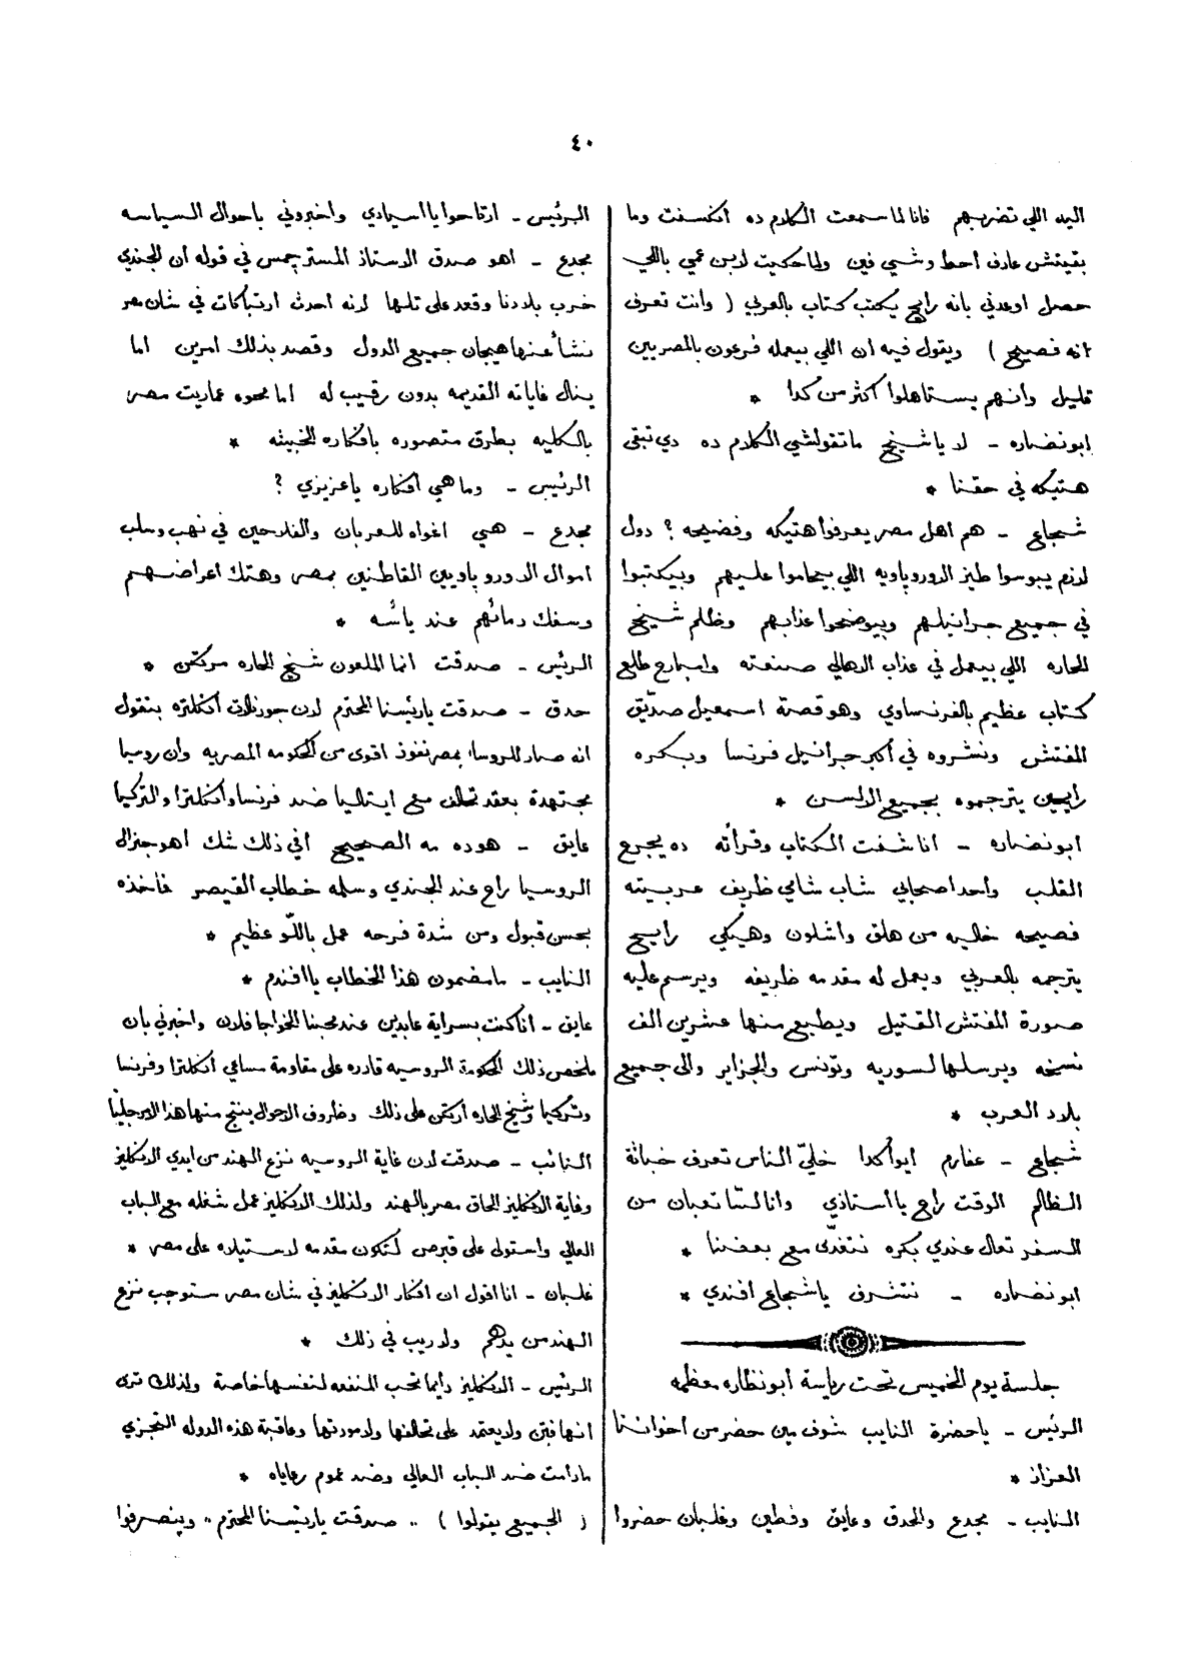 ٤٠
اليد اللي تضربهم فانا لما سمعت الكلام ده انكسفت وما
بقيتش عارف أحط وشي فين ولما حكيت لابن عمي باللي
حصل اوعدني بانه رايح يكتب كتاب بالعربي ( وانت تعرف
انه فصيح ) ويقول فيه ان اللي بيعمله فرعون بالمصريين
قليل وانهم يستاهلوا أكثر من كدا *
ابو نضاره - لا يا شيخ ما تقولشي الكلام ده دي تبقى
هتيكه في حقنا *
شجاع - هم اهل مصر يعرفوا هتيكه وفضيحه ؟ دول
لازم يبوسوا طيز الاوروپاويه اللي بيحاموا عليهم وبيكتبوا
في جميع جرانيلهم وبيوضحوا عذابهم وظلم شيخ
الحاره اللي بيعمل في عذاب الاهالي صنعته وامبارح طلع
كتاب عظيم بالفرنساوي وهو قصة اسمعيل صدّيق
المفتش ونشروه في أكبر جرانيل فرنسا وبكره
رايحين يترجموه بجميع الالسن *
ابو نضاره - انا شفت الكتاب وقرأته ده يجرح
القلب وأحد اصحابي شاب شامي ظريف عربيته
فصيحه خاليه من هلق واشلون وهيكي رايح
يترجمه بالعربي ويعمل له مقدمه ظريفه ويرسم عليه
صورة المفتش القتيل ويطبع منها عشرين الف
نسخه ويرسلها لسوريه وتونس والجزاير والى جميع
بلاد العرب *
شجاع - عفارم ايوا كدا خليّ الناس تعرف خباثة
الظالم الوقت راح يا أستاذي وانا لسّا تعبان من
السفر تعال عندي بكره نتغدّى مع بعضنا *
ابو نضاره - نتشرف يا شجاع أفندي *
جلسة يوم الخميس تحت رياسة أبو نظاره معظمه
الرئيس - يا حضرة النايب شوف مين حضر من أخواننا
العزاز *
النايب - مجدع والحدق وعايق وفطين وغلبان حضروا
الرئيس - ارتاحوا يا اسيادي واخبروني باحوال السياسه
مجدع - اهو صدق الاستاذ المستر جمس في قوله أن الجندي
خرب بلادنا وقعد على تلها لانه احدث ارتباكات في شان مصر
نشأ عنها هيجان جميع الدول وقصد بذلك امرين اما
ينال غاياته القديمه بدون رقيب له اما محوه عماريت مصر
بالكليه بطرق متصوره بافكاره الخبيثه *
الرئيس - وما هي أفكاره يا عزيزي ؟
مجدع - هي اغواه للعربان والفلاحين في نهب وسلب
اموال الاوروپاويين القاطنين بمصر وهتك اعراضهم
وسفك دمائهم عند يأسه *
الرئيس - صدقت انما الملعون شيخ الحاره مركن *
حدق - صدقت يا رئيسنا المحترم لان جورنالات أنكلتره بتقول
انه صار للروسا بمصر نفوذ اقوى من الحكومه المصريه وان روسيا
مجتهدة بعقد تحالف مع ايتاليا ضد فرنسا وانكلترا والتركيا
عايق - هو ده مه الصحيح أفي ذلك شك أهو جنرال
الروسيا راح عند الجندي وسلمه خطاب القيصر فاخذه
بحسن قبول ومن شدة فرحه عمل باللّو عظيم *
النايب - ما مضمون هذا الخطاب يا افندم *
عايق - أنا كنت بسراية عابدين عند محبنا الخواجا فلان واخبرني بان
ملخص ذلك الحكومة الروسيه قادره على مقاومة مساعي أنكلترا وفرنسا
وتركيا وشيخ الحاره أركن على ذلك وظروف الاحوال ينتج منها هذا الامر جليّا
النائب - صدقت لان غاية الروسيه نزع الهند من ايدي الانكليز
وغاية الانكليز الحاق مصر بالهند ولذلك الانكليز عمل شغله مع الباب
العالي واستولى على قبرص لتكون مقدمه لاستيلاه على مصر *
غلبان - انا اقول ان افكار الانكليز في شان مصر ستوجب نزع
الهند من يدهم ولا ريب في ذلك *
الرئيس - الانكليز دايما تحب المنفعه لنفسها خاصة ولذلك ترى
انها فتن ولا يعتمد على تحالفها ولا مودتها وعاقبة هذه الدوله التجزي
مادامت ضد الباب العالي وضد عموم رعاياه *
( الجميع يقولوا ) .. صدقت يا رئيسنا المحترم .. وينصرفوا